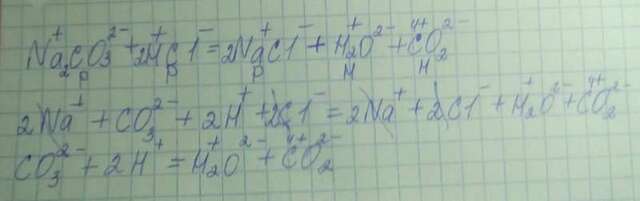 Na₂⁺CO₃²⁻ + 2H⁺Cl⁻ = 2Na⁺Cl⁻ + H₂⁺O²⁻ + C⁴⁺O₂²⁻
р р р н н
2Na⁺ + CO₃²⁻ + 2H⁺ + 2Cl⁻ = 2Na⁺ + 2Cl⁻ + H₂⁺O²⁻ + C⁴⁺O₂²⁻
CO₃²⁻ + 2H⁺ = H₂⁺O²⁻ + C⁴⁺O₂²⁻